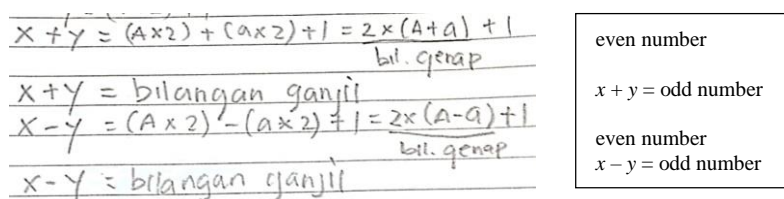 x + y = (A×2) + (a×2) + 1 = 2×(A+a) + 1
bil. genap
x + y = bilangan ganjil
x - y = (A×2) - (a×2) + 1 = 2×(A-a) + 1
bil. genap
x - y = bilangan ganjil
even number
x + y = odd number
even number
x – y = odd number